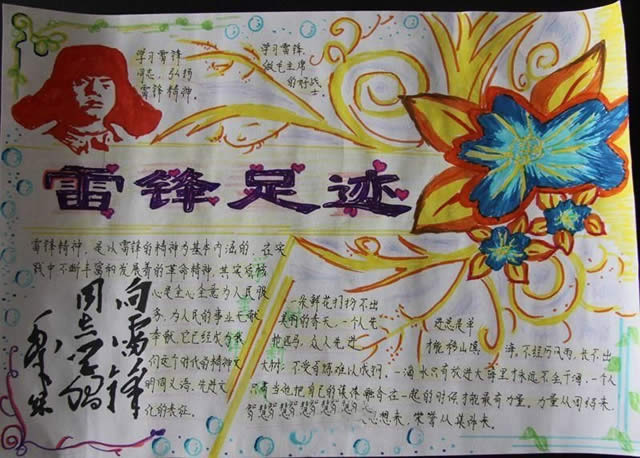 学习雷锋
同志,弘扬
雷锋精神。
学习雷锋,
做毛主席
的好战
士。
雷锋足迹
雷锋精神,是以雷锋的精神为基本内涵的、在实
践中不断丰富和发展着的革命精神,其实质核
心是全心全意为人民服
务,为人民的事业无私
奉献。它已经成为我
们这个时代的精神文
明同义语、先进文
化的表征。
向雷锋
同志学习
毛泽东
一朵鲜花打扮不出
美丽的春天,一个人先
进总是单
枪匹马,众人先进
才能移山填海。不经历风雨,长不出
大树;不受百炼难以成钢。一滴水只有放进大海里才永远不会干涸,一个人
只有当他把自己和集体融合在一起的时候才能最有力量。力量从团结来,
智慧
思想来,荣誉从集体来。